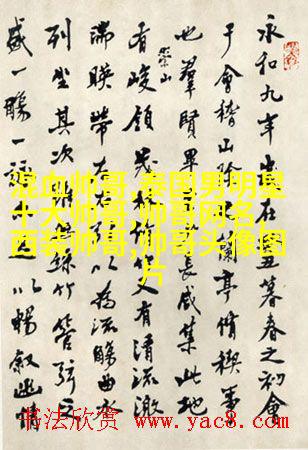 永和九年在丑暮春之初會
于會稽山陰蘭亭脩稧事
也羣賢畢長咸集此地
有崇山峻領茂又有清流激
湍暎帶左右以為流觴曲水
列坐其次絲竹管弦之
盛一觴一以暢敘幽情
混血帅哥,泰国男明星
十大帅哥,帅哥网名,
西装帅哥,帅哥头像图
片
书法欣赏 www.yac8.com